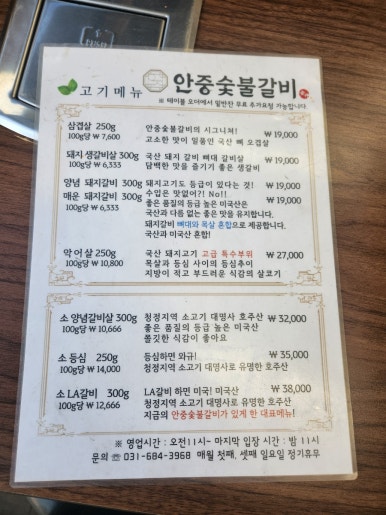 고기메뉴
안중숯불갈비
※ 테이블 오더에서 일반잔 무료 추가요청 가능합니다.
삼겹살 250g 안중숯불갈비의 시그니처! ₩ 19,000
100g당 ₩ 7,600 고소한 맛이 일품인 국산 뼈 오겹살
돼지 생갈비살 300g 국산 돼지 갈비 뼈대 갈비살 ₩ 19,000
100g당 ₩ 6,333 담백한 맛을 즐기기 좋은 생갈비
양념 돼지갈비 300g 돼지고기도 등급이 있다는 것! ₩ 19,000
매운 돼지갈비 300g 수입은 맛없어?! No!! ₩ 19,000
100g당 ₩ 6,333 좋은 품질의 등급 높은 미국산은
국산과 다름 없는 좋은 맛을 유지합니다.
돼지갈비 뼈대와 목살 혼합으로 제공합니다.
국산과 미국산 혼합!
악어살 250g 국산 돼지고기 고급 특수부위 ₩ 27,000
100g당 ₩ 10,800 목살과 등심 사이의 등심추이
지방이 적고 부드러운 식감의 살코기
소 양념갈비살 300g 청정지역 소고기 대명사 호주산 ₩ 32,000
100g당 ₩ 10,666 좋은 품질의 등급 높은 미국산
쫄깃한 식감이 좋아요
소 등심 250g 등심하면 와규! ₩ 35,000
100g당 ₩ 14,000 청정지역 소고기 대명사로 유명한 호주산
소 LA갈비 300g LA갈비 하면 미국! 미국산 ₩ 38,000
100g당 ₩ 12,666 청정지역 소고기 대명사로 유명한 호주산
지금의 안중숯불갈비가 있게 한 대표메뉴!
※ 영업시간 : 오전11시~ 마지막 입장 시간 : 밤 11시
문의 ☏ 031-684-3968 매월 첫째, 셋째 일요일 정기휴무